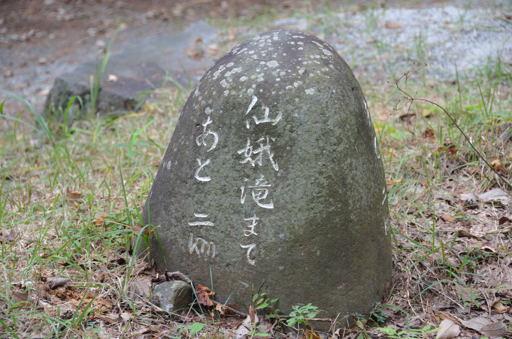 仙娥滝まで
あと二㎞